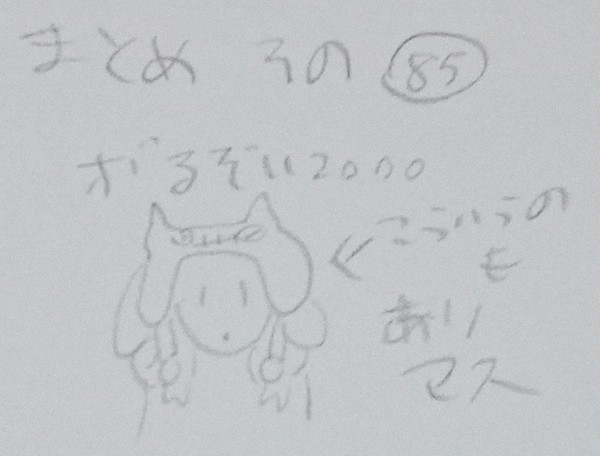 まとめ その 85
がるぞい2000
こういうの
も
あり
マス